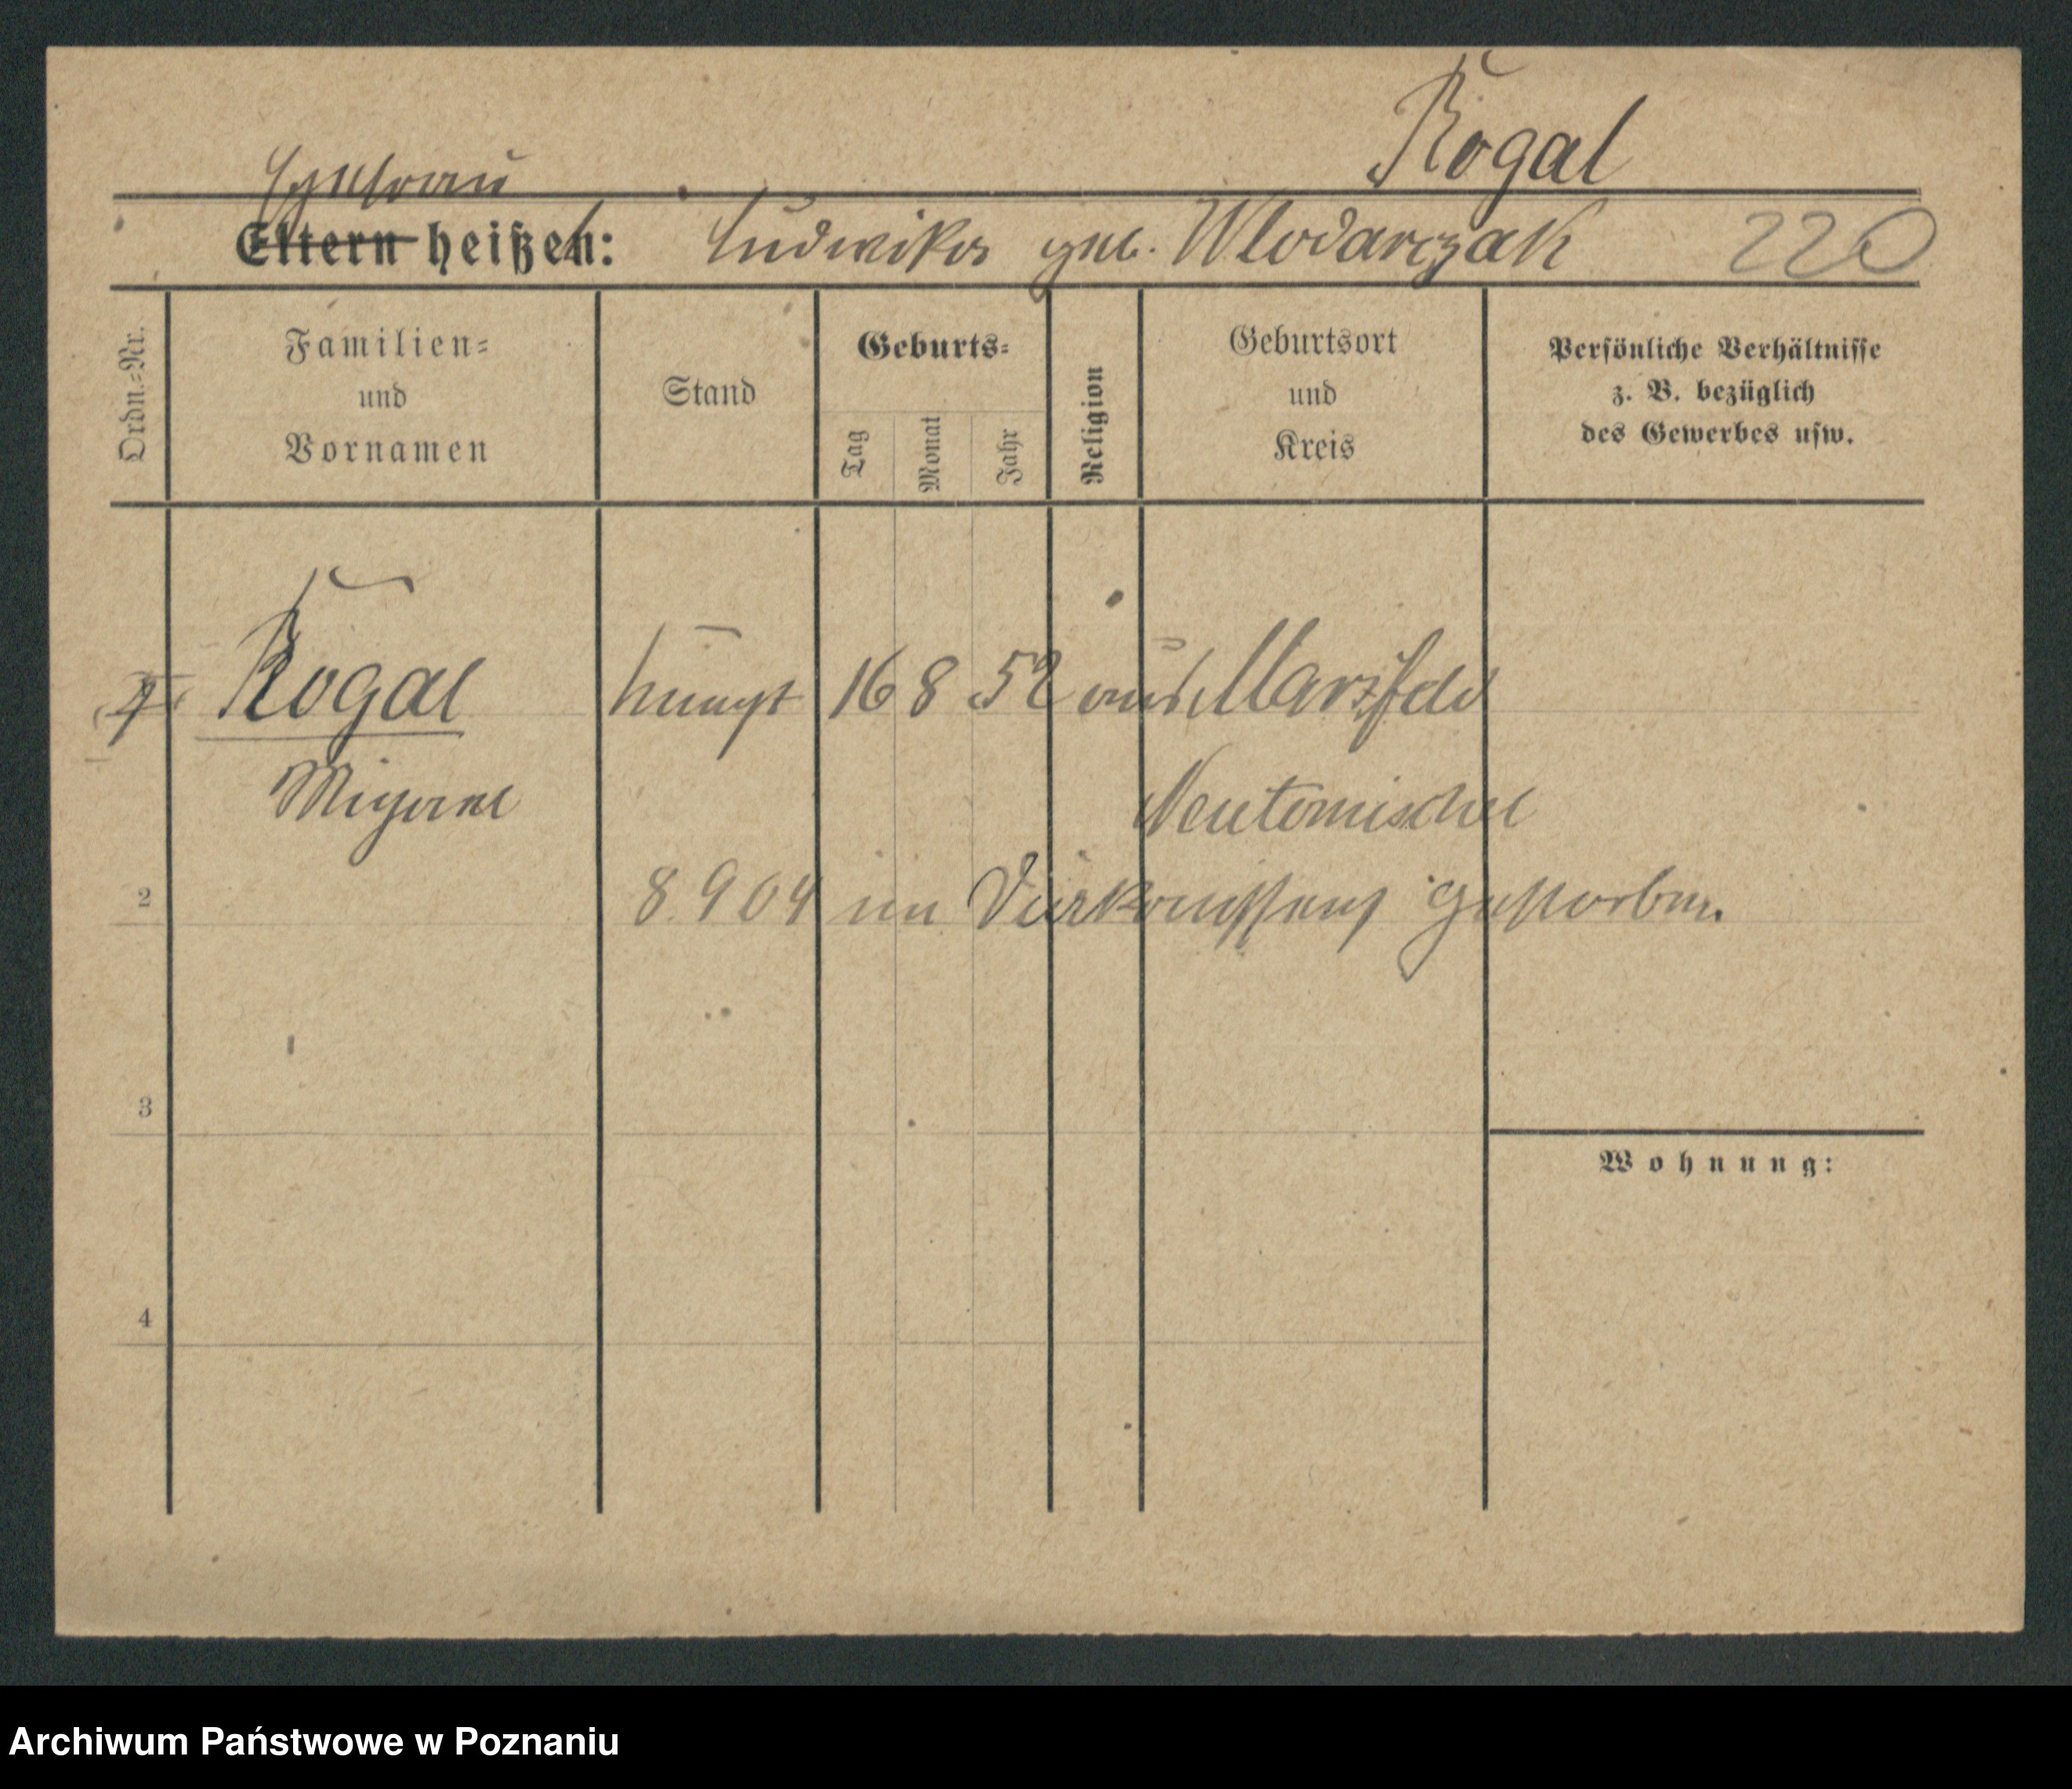 Rogal
Ehefrau
Eltern heißen: Ludwika geb. Wlodarczak 220
Ordn.=Nr.
Familien=
und
Vornamen
Stand
Geburts=
Tag
Monat
Jahr
Religion
Geburtsort
und
Kreis
Persönliche Verhältnisse
z. B. bezüglich
des Gewerbes usw.
Rogal 16 8 52 Marzfeld
Michael Neutomischel
2 8.904 im gestorben.
3
Wohnung:
4
Archiwum Państwowe w Poznaniu